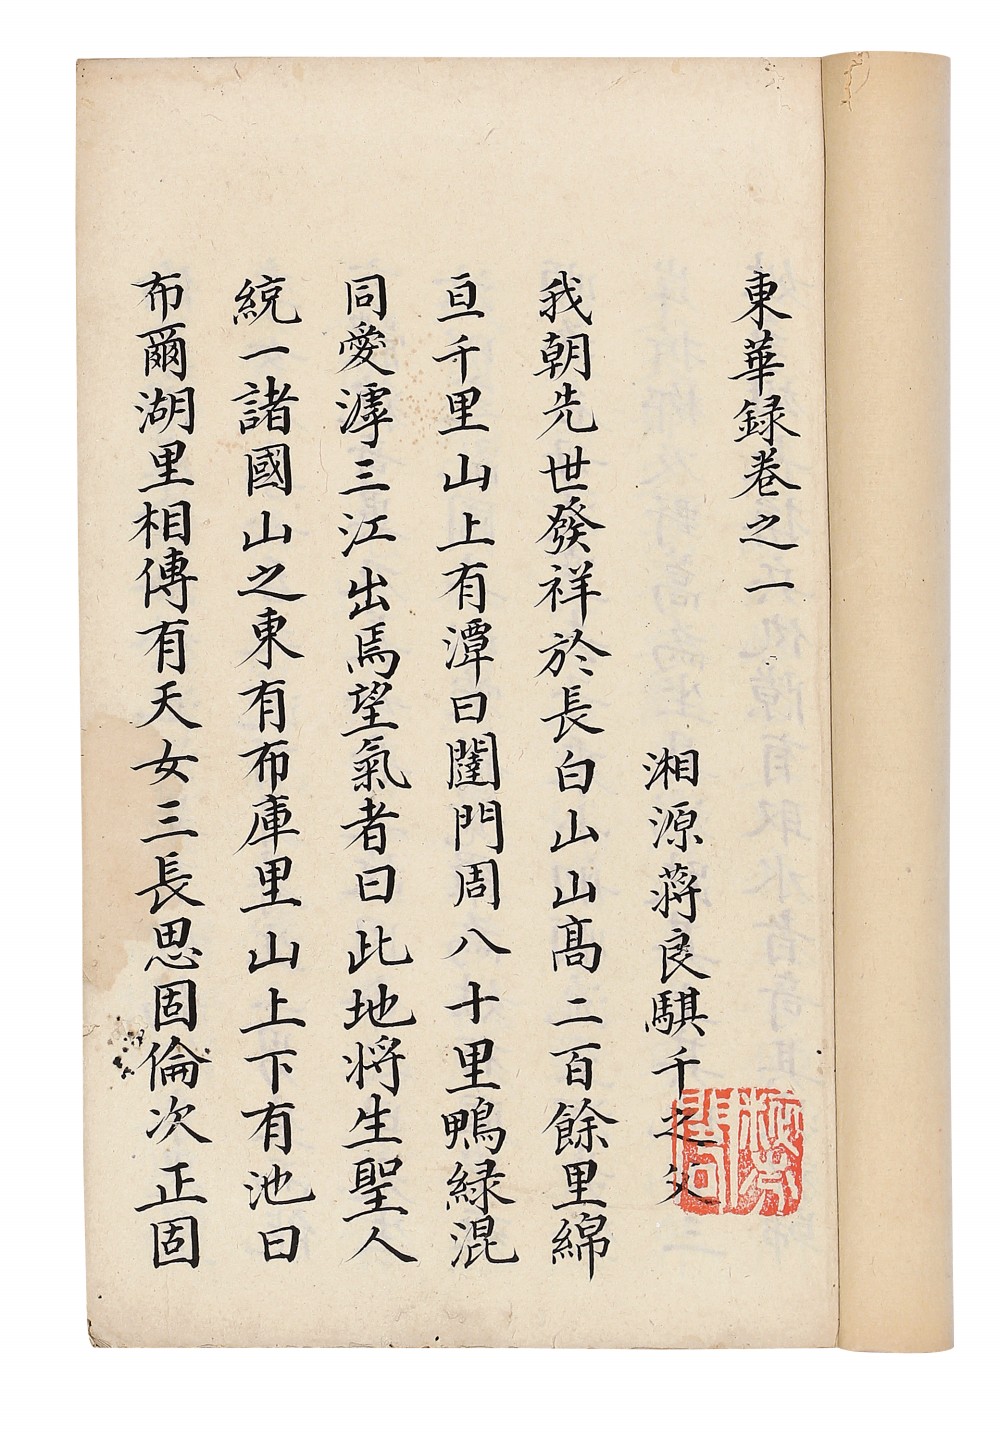 東華録卷之一
湘源蔣良騏千之父
我朝先世發祥於長白山山髙二百餘里綿
亘千里山上有潭曰闥門周八十里鴨緑混
同愛滹三江出焉望氣者曰此地将生聖人
統一諸國山之東有布庫里山上下有池曰
布爾湖里相傳有天女三長思固倫次正固